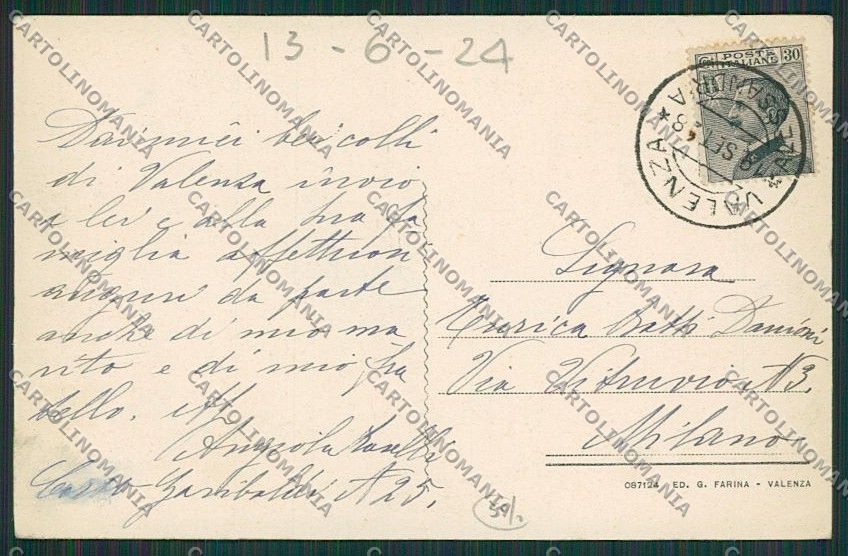 13 - 6 - 24
POSTE ITALIANE 30
VALENZA * ALESSANDRIA *
SET
Dai miei bei colli
di Valenza invio
a lei e alla sua fa
miglia affettuosi
auguri da parte
anche di mio ma
rito e di mio fra
tello.
Angiola
Corso Garibaldi N 25.
Signora
Enrica Damiani
Via Vitruvio N 3.
Milano
087124 ED. G. FARINA - VALENZA
CARTOLINOMANIA